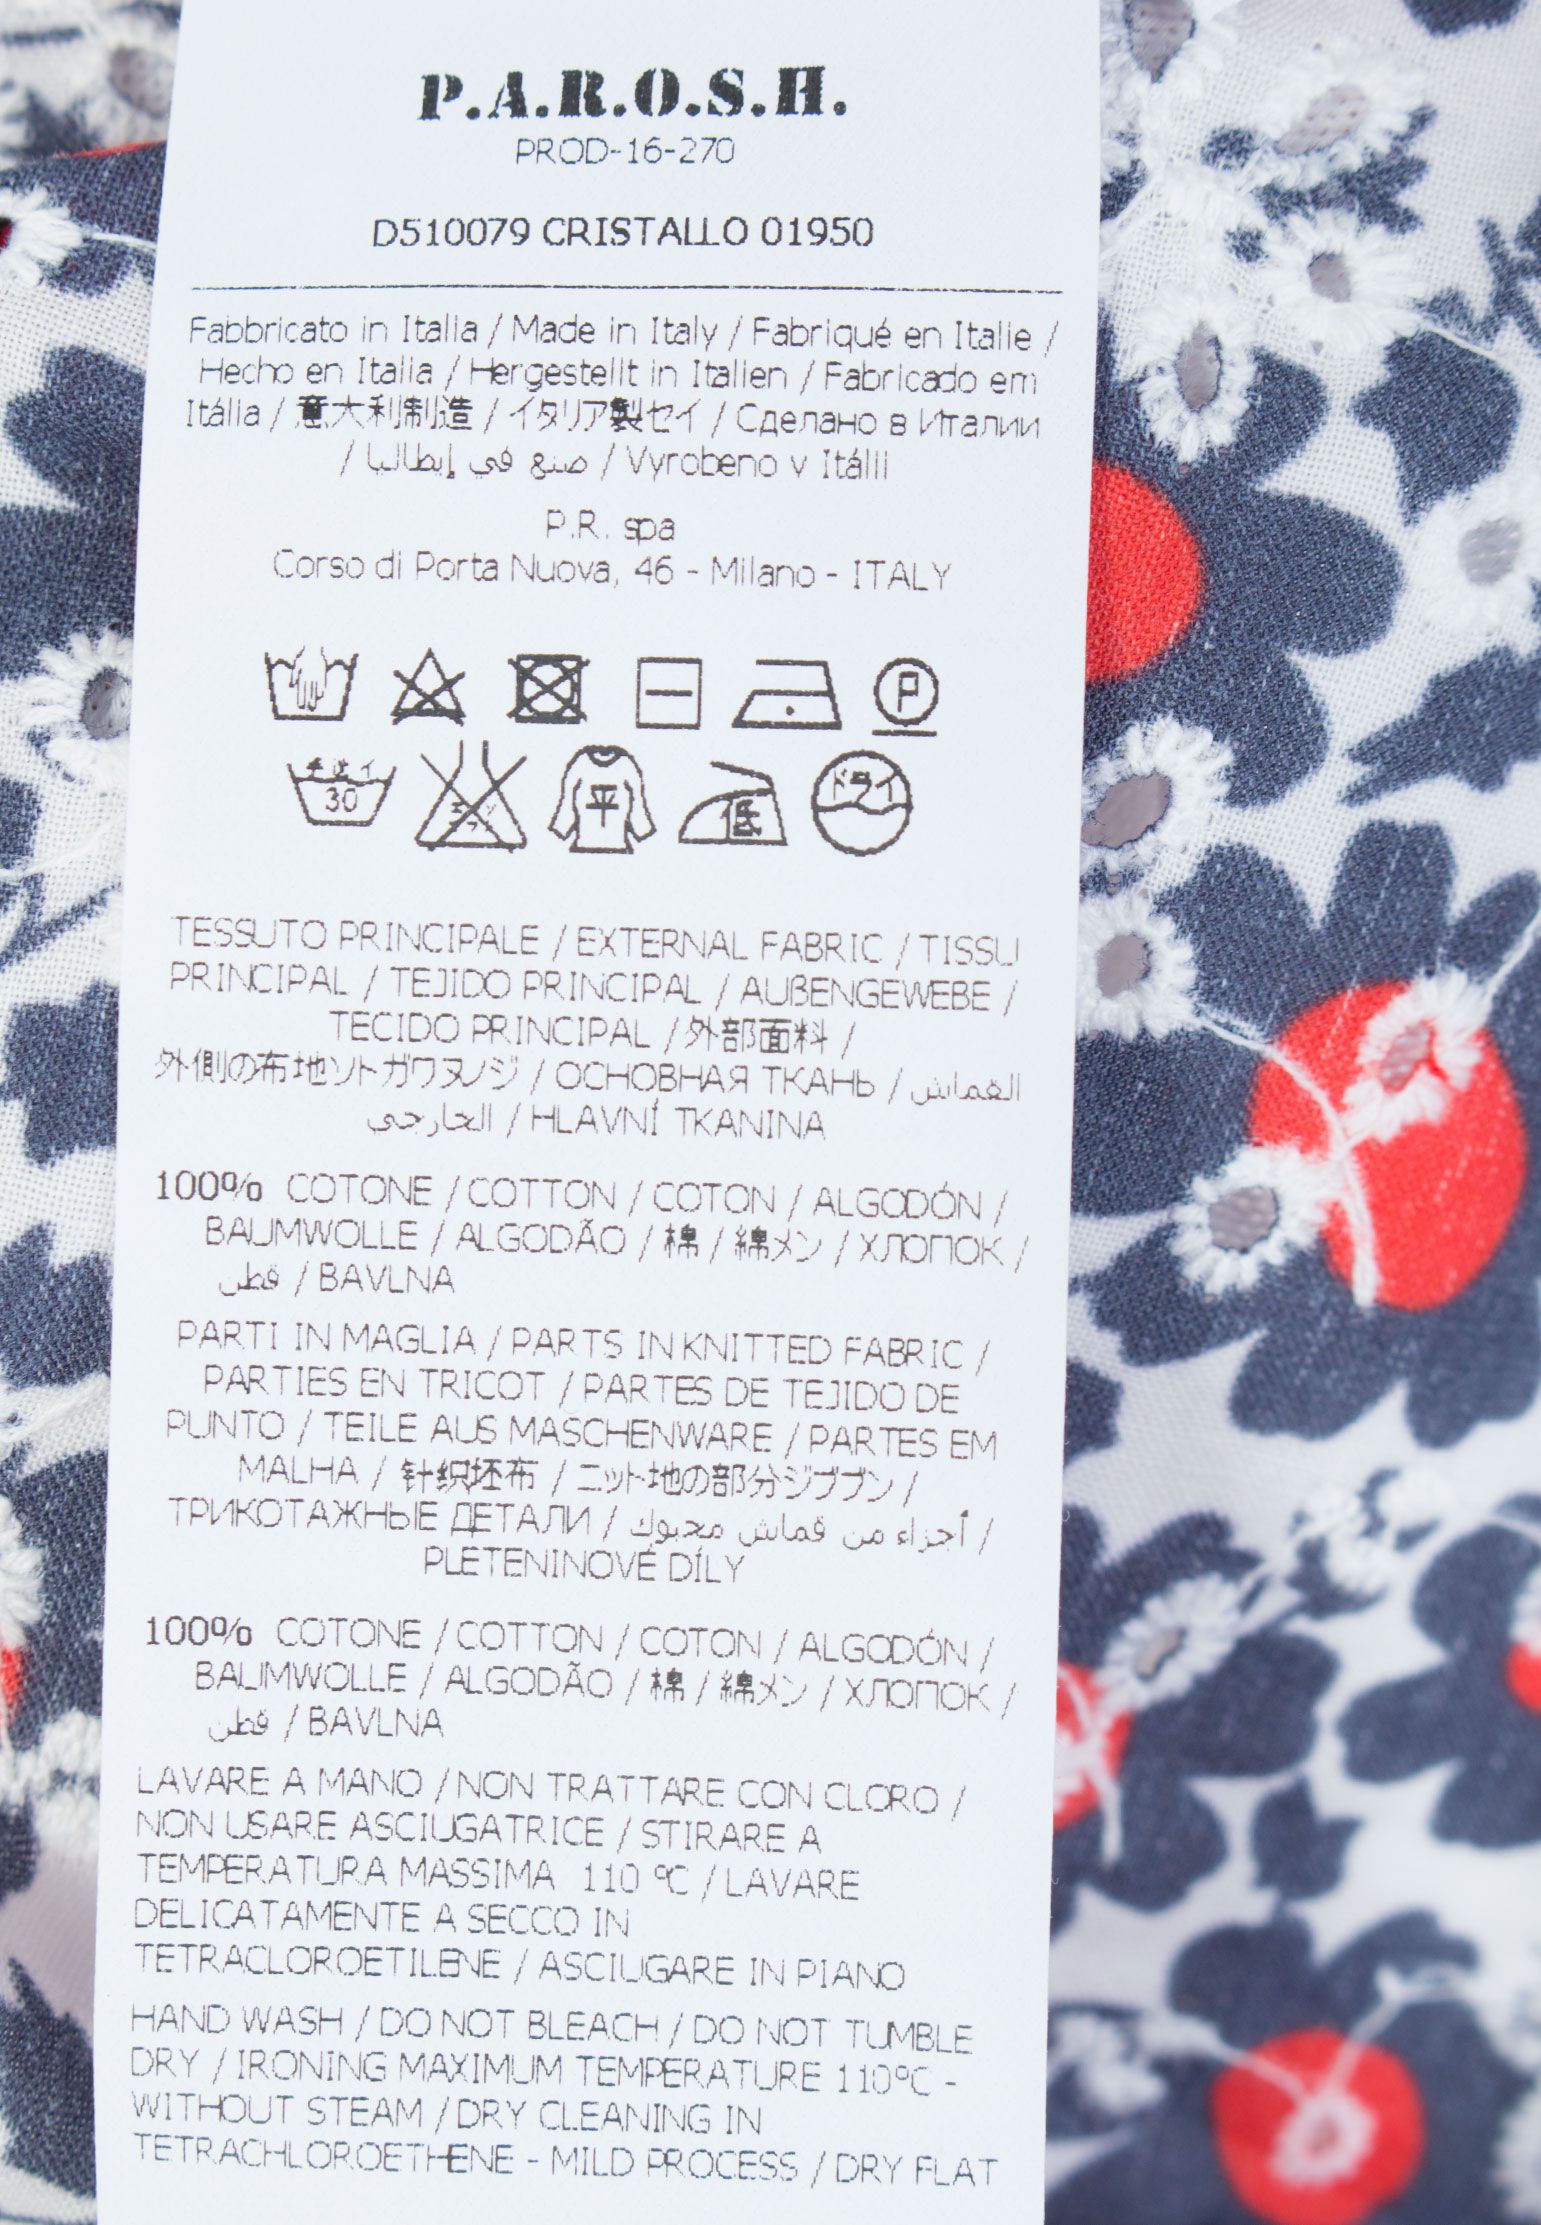 P.A.R.O.S.H.
PROD-16-270
D510079 CRISTALLO 01950
Fabbricato in Italia / Made in Italy / Fabriqué en Italie /
Hecho en Italia / Hergestellt in Italien / Fabricado em
Itália / 意大利制造 / イタリア製セイ / Сделано в Италии
/ صنع في إيطاليا / Vyrobeno v Itálii
P.R. spa
Corso di Porta Nuova, 46 - Milano - ITALY
P
手洗イ
30
エンソ
平
低
ドライ
TESSUTO PRINCIPALE / EXTERNAL FABRIC / TISSU
PRINCIPAL / TEJIDO PRINCIPAL / AUßENGEWEBE /
TECIDO PRINCIPAL / 外部面料 /
外側の布地ソトガワヌノジ / ОСНОВНАЯ ТКАНЬ / القماش
الخارجي / HLAVNÍ TKANINA
100% COTONE / COTTON / COTON / ALGODÓN /
BAUMWOLLE / ALGODÃO / 棉 / 綿メン / ХЛОПОК /
قطن / BAVLNA
PARTI IN MAGLIA / PARTS IN KNITTED FABRIC /
PARTIES EN TRICOT / PARTES DE TEJIDO DE
PUNTO / TEILE AUS MASCHENWARE / PARTES EM
MALHA / 针织坯布 / ニット地の部分ジブブン /
ТРИКОТАЖНЫЕ ДЕТАЛИ / أجزاء من قماش محبوك /
PLETENINOVÉ DÍLY
100% COTONE / COTTON / COTON / ALGODÓN /
BAUMWOLLE / ALGODÃO / 棉 / 綿メン / ХЛОПОК /
قطن / BAVLNA
LAVARE A MANO / NON TRATTARE CON CLORO /
NON USARE ASCIUGATRICE / STIRARE A
TEMPERATURA MASSIMA 110 °C / LAVARE
DELICATAMENTE A SECCO IN
TETRACLOROETILENE / ASCIUGARE IN PIANO
HAND WASH / DO NOT BLEACH / DO NOT TUMBLE
DRY / IRONING MAXIMUM TEMPERATURE 110°C -
WITHOUT STEAM / DRY CLEANING IN
TETRACHLOROETHENE - MILD PROCESS / DRY FLAT